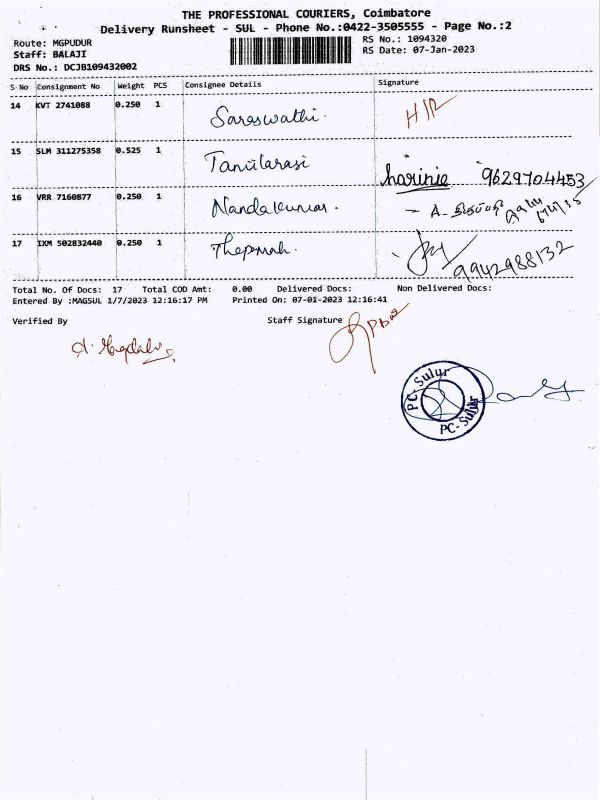 THE PROFESSIONAL COURIERS, Coimbatore
Delivery Runsheet - SUL - Phone No.:0422-3505555 - Page No.:2
Route: MGPUDUR
RS No.: 1094320
Staff: BALAJI
RS Date: 07-Jan-2023
DRS No.: DCJB109432002
S No Consignment No Weight PCS Consignee Details Signature
14 KVT 2741088 0.250 1 Saraswathi.
15 SLM 311275358 0.525 1 Tamilarasi harinie 9629704453
16 VRR 7160877 0.250 1 Nandakumar. - A.
17 IXM 502832440 0.250 1 9942988132
Total No. Of Docs: 17 Total COD Amt: 0.00 Delivered Docs: Non Delivered Docs:
Entered By :MAGSUL 1/7/2023 12:16:17 PM Printed On: 07-01-2023 12:16:41
Verified By Staff Signature
PC-Sulur
PC-Sulur